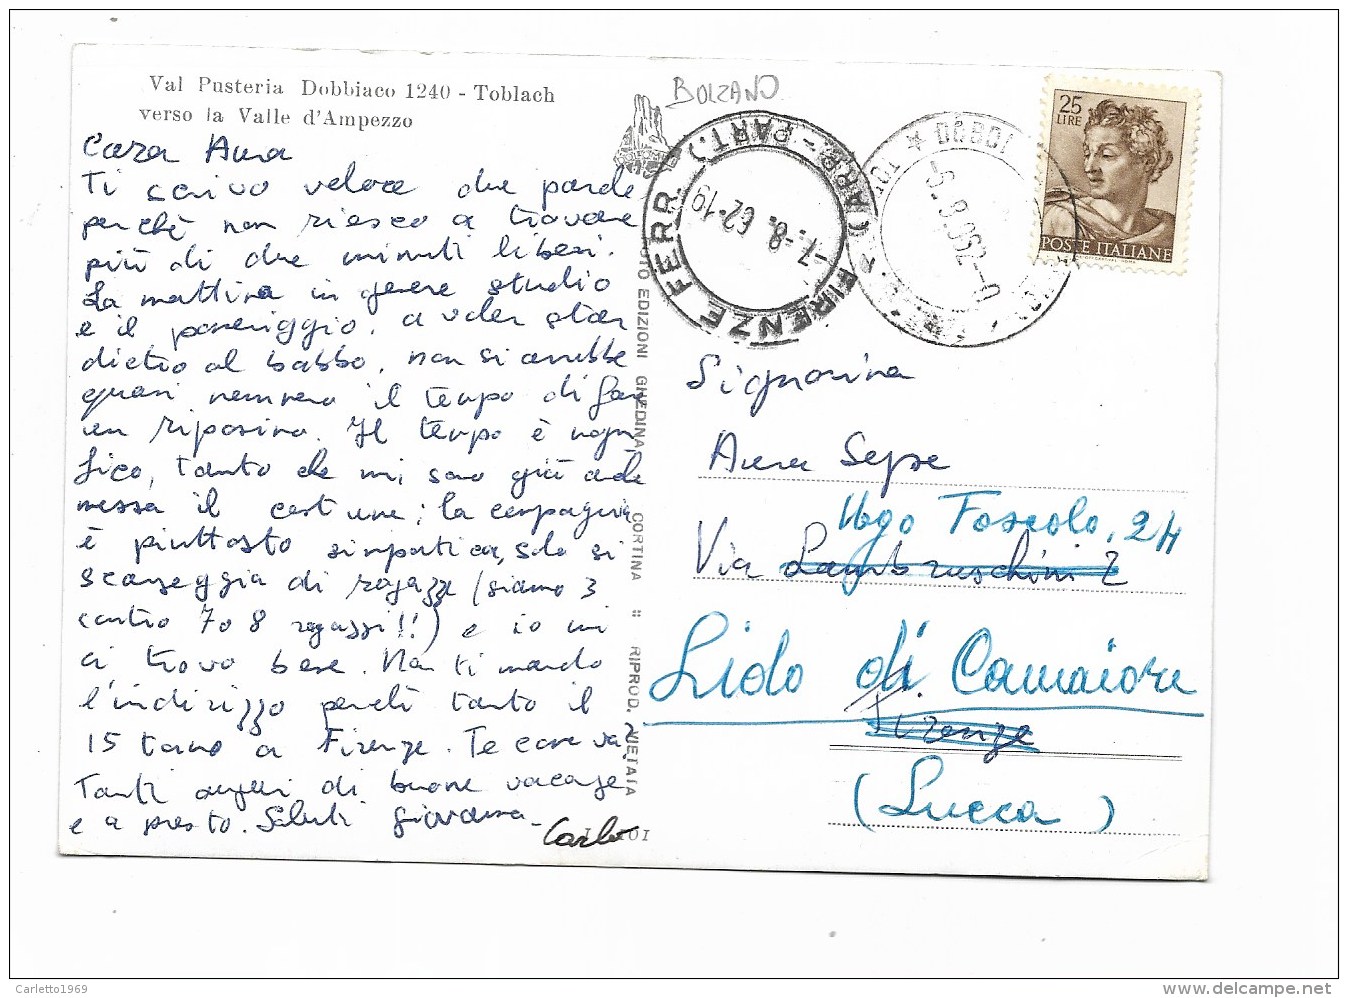 Val Pusteria Dobbiaco 1240 - Toblach
verso la Valle d'Ampezzo
BOLZANO
Cara Anna
Ti scrivo veloce due parole
perchè non riesco a trovare
più di due minuti liberi.
La mattina in genere studio
e il pomeriggio, a voler star
dietro al babbo, non si avrebbe
quasi nemmeno il tempo di fare
un riposino. Il tempo è magni
fico, tanto che mi sono già anche
messa il costume; la compagnia
è piuttosto simpatica, solo si
scarseggia di ragazze (siamo 3
contro 7 o 8 ragazzi!!) e io mi
ci trovo bene. Non ti mando
l'indirizzo perchè tanto il
15 torno a Firenze. Te come va?
Tanti auguri di buone vacanze
e a presto. Saluti Giovanna
Carlo
FOTO EDIZIONI GHEDINA CORTINA :: RIPROD. VIETATA
FIRENZE FERR. (ARR. - PART.)
-7.-8. 62-19
DOBBI
25
LIRE
POSTE ITALIANE
Signorina
Anna Sepe
Ugo Foscolo, 24
Via Lambruschini 2
Lido di Camaiore
Firenze
(Lucca)
Carletto1969
www.delcampe.net